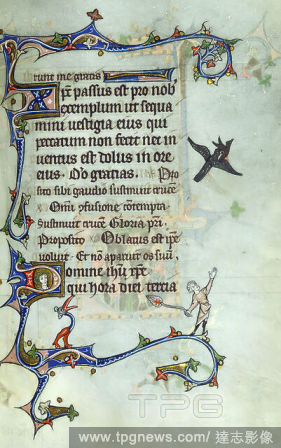 runt me gratis
Xpē passus est pro nob
exemplum ut sequa
mini uestigia eius qui
peccatum non fecit nec in
uentus est dolus in ore
eius. Do gratias. Pro
sito sibi gaudio sustinuit crucē
Omi ꝯfusione contempta
Sustinuit crucē Gloria pri.
Proposito Oblatus est ipē
uoluit. Et nō aparuit os suū,
Domine ihū xpē
qui hora diei tercia
TPG
www.tpgnews.com/達志影像